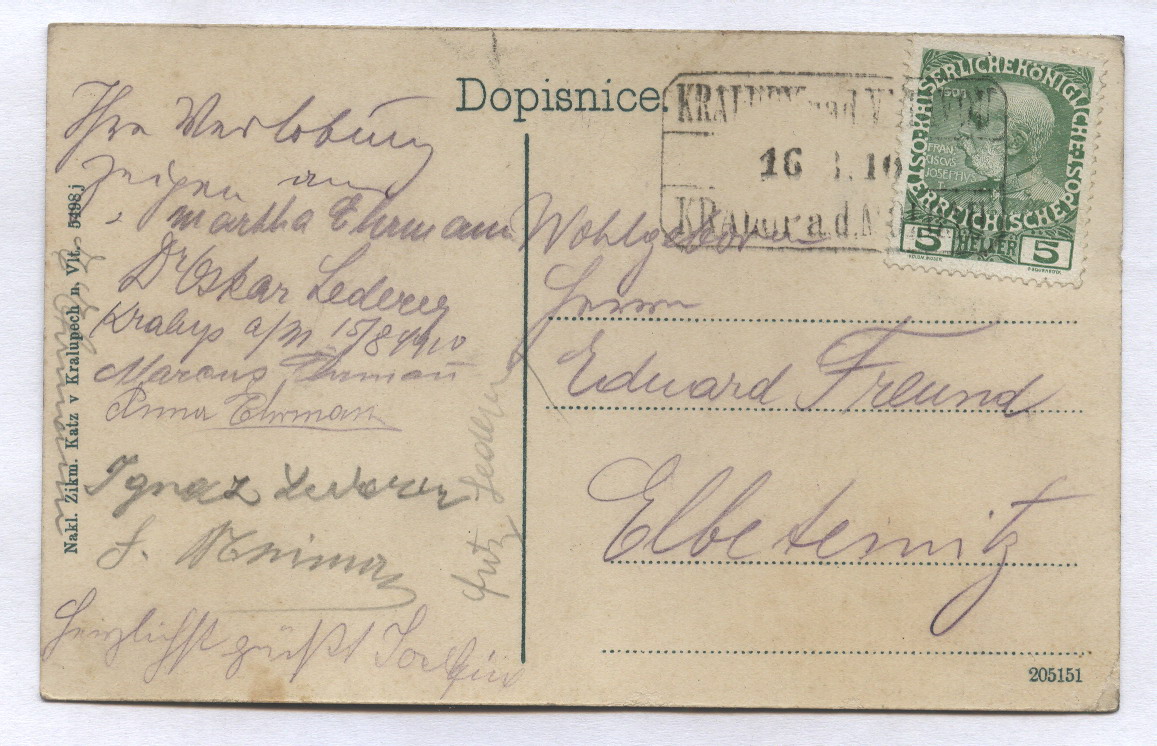 Dopisnice.
KRALUPY nad VLTAVOU
16 10
KRALUP a.d. M
KAISERLICHE KÖNIGLICHE ÖSTERREICHISCHE POST
FRAN
CISCUS
JOSEPHUS
5 HELLER 5
Ihre Verlobung
zeigen an
Martha Ehrmann
Dr Oskar Lederer
Kralup a/M 15/8 1910
Marcus Ehrmann
Anna Ehrmann
Ignaz Lederer
Fritz Lederer
Ehrmann
Herzlichst grüßt
Nakl. Zikm. Katz v Kralupech n. Vlt. 5498j
Wohlgeboren
Herrn
Eduard Freund
Elbeteinitz
205151